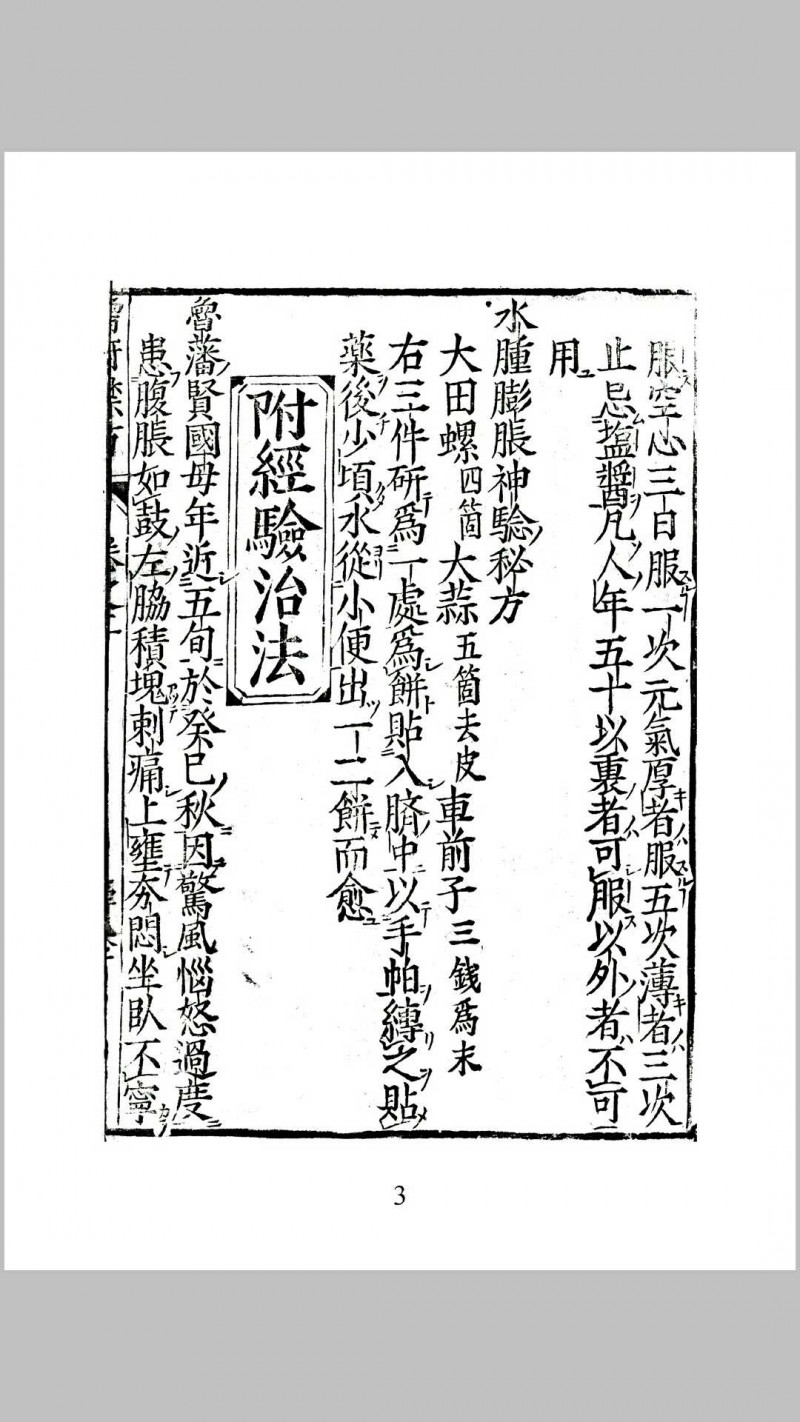 服空心三日服一次元氣厚者服五次薄者三次
止忌塩醬凡人年五十以裏者可服以外者不可
用
水腫膨脹神驗秘方
大田螺四箇大蒜五箇去皮車前子三錢爲末
右三件研爲一處爲餅貼入臍中以手帕縛之貼
藥後少頃水從小便出一二餅而愈
附經驗治法
魯藩賢國母年近五旬於癸巳秋因驚風惱怒過度
患腹脹如鼓左脇積塊刺痛上壅夯悶坐臥不寧
3